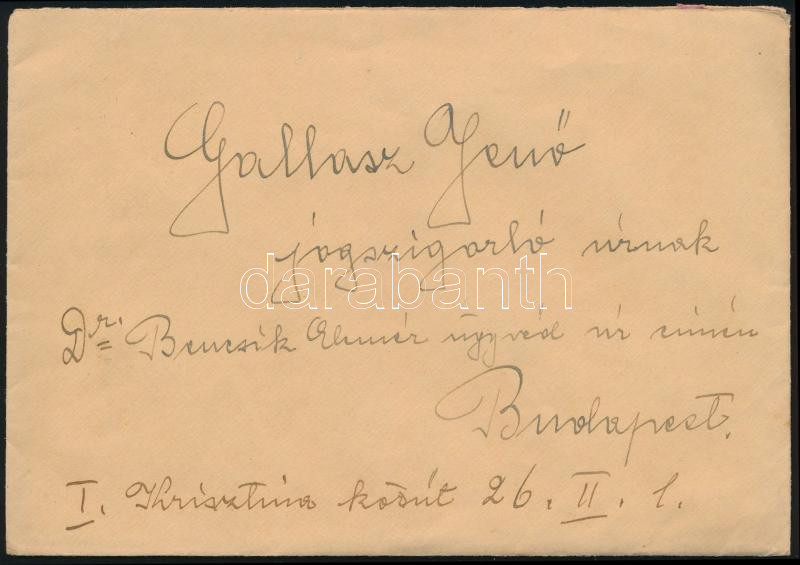 Gallasz Jenő
jogszigorló úrnak
darabanth
Dr. Bencsik Elemér ügyvéd úr címén
Budapest.
I. Krisztina köőút 26. II. 1.